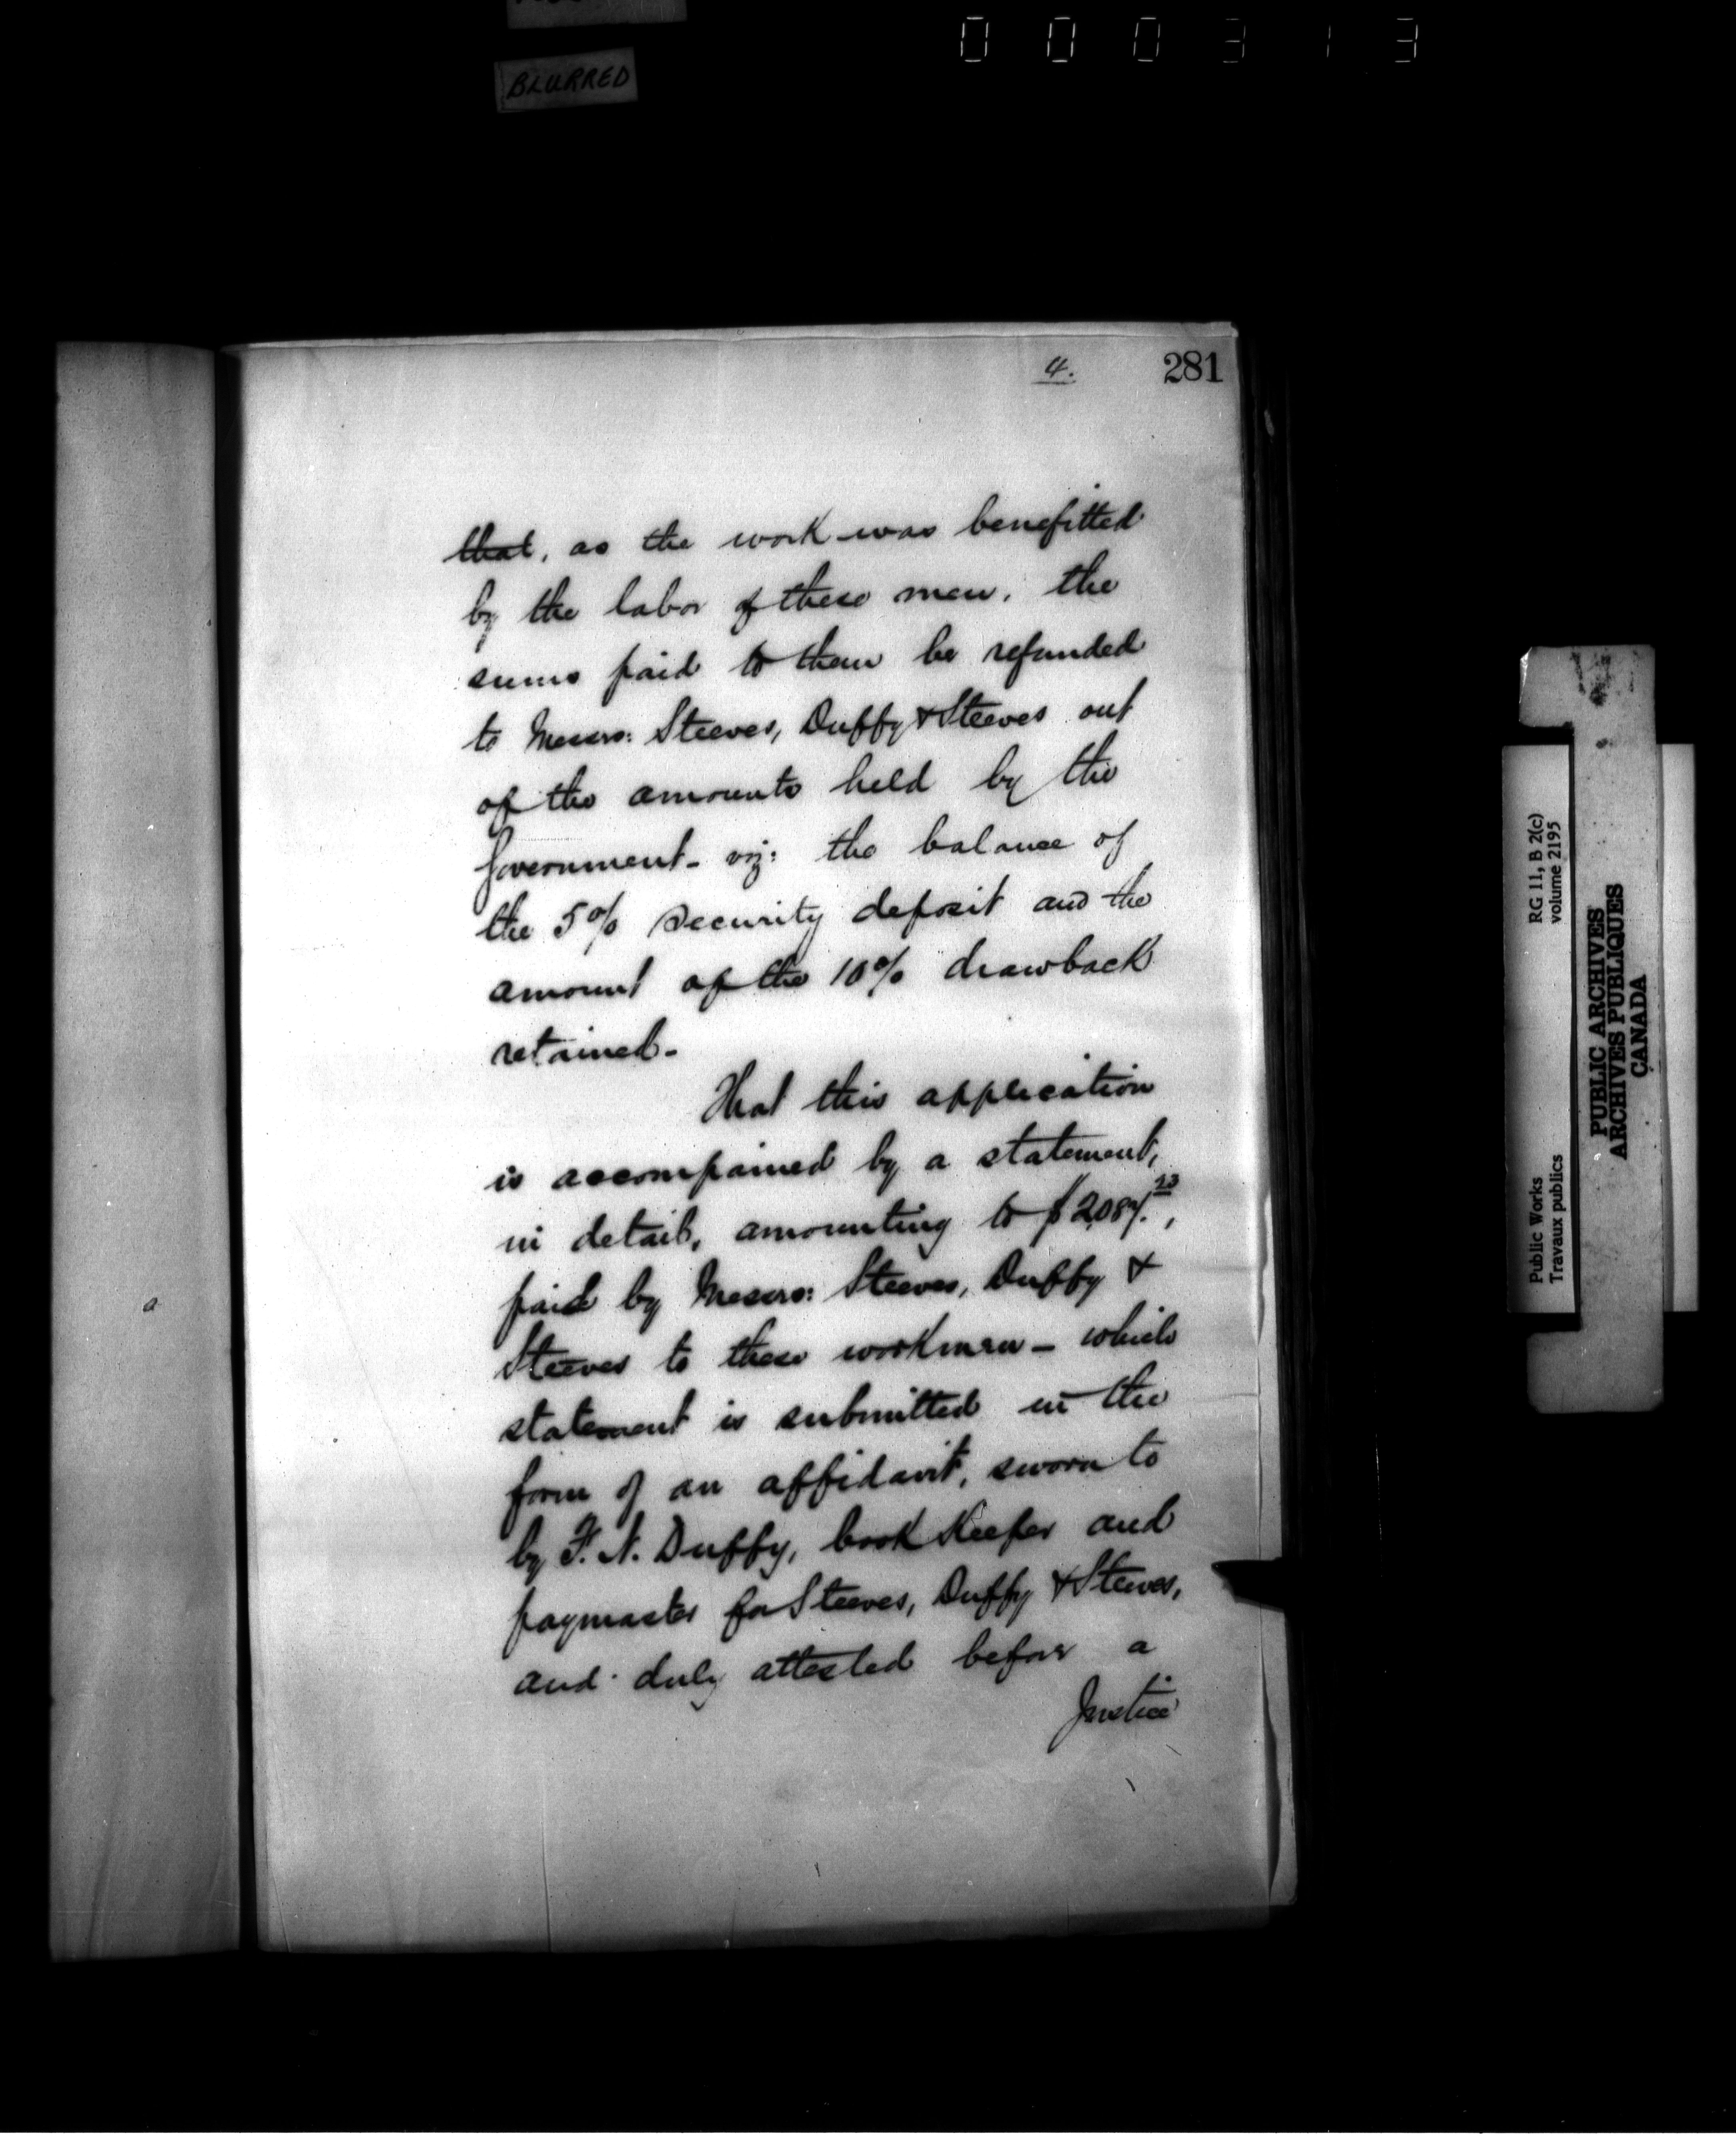 BLURRED
000313
4.
281
that, as the work was benefitted
by the labor of these men, the
sums paid to them be refunded
to Messrs: Steeves, Duffy & Steeves out
of the amounts held by the
Government - viz: the balance of
the 5% security deposit and the
amount of the 10% drawback
retained -
That this application
is accompained by a statement,
in detail, amounting to
paid by Messrs: Steeves, Duffy &
Steeves to these workmen - which
statement is submitted in the
form of an affidavit, sworn to
by F. N. Duffy, book Keeper and
paymaster for Steeves, Duffy & Steeves,
and duly attested before a
Justice
Public Works
Travaux publics
RG 11, B 2(c)
volume 2195
PUBLIC ARCHIVES
ARCHIVES PUBLIQUES
CANADA